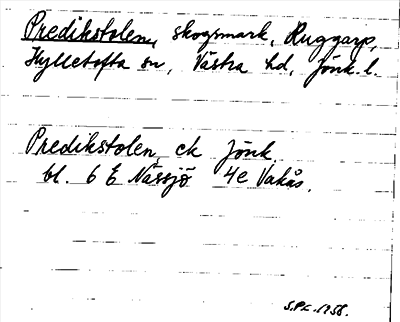 Predikstolen, skogsmark, Ruggarp,
Hylletofta sn, Västra hd, Jönk. l.
Predikstolen, ek Jönk.
bl. 6 E Nässjö 4e Vakås.
S.P.L. 1958.